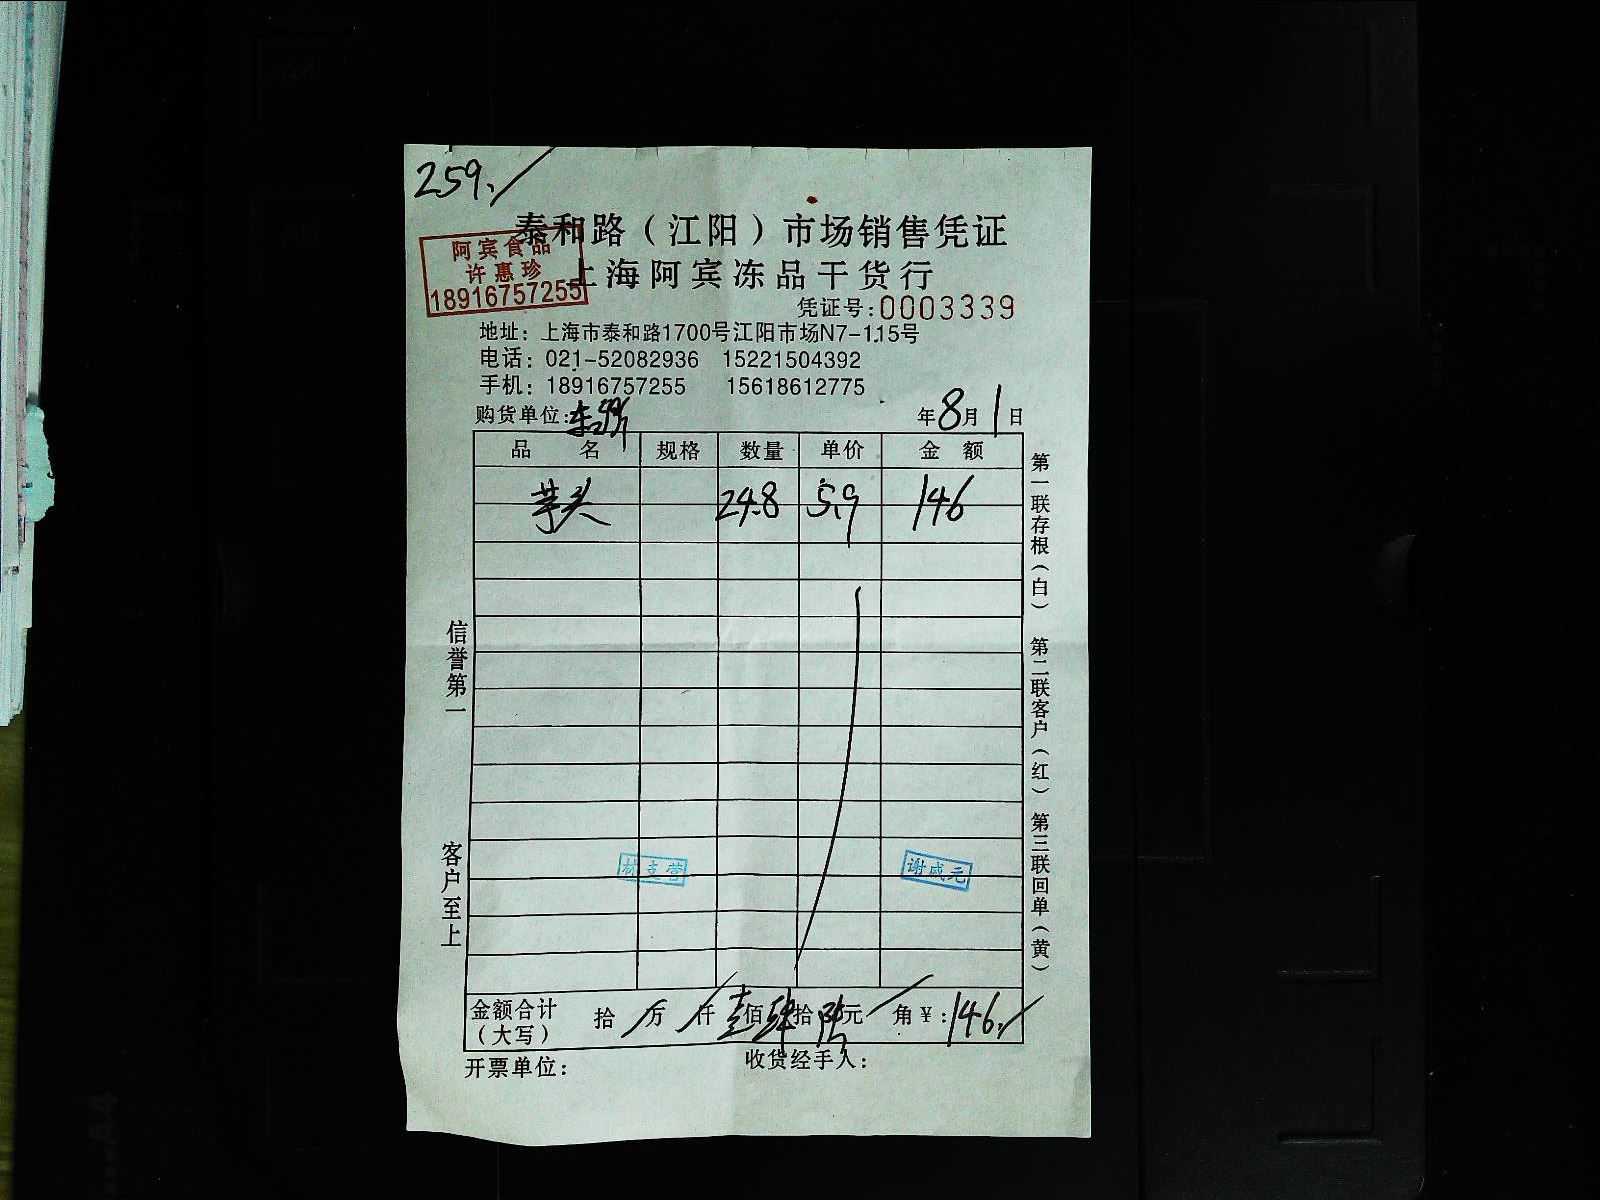 259.
泰和路（江阳）市场销售凭证
阿宾食品
许惠珍
18916757255
上海阿宾冻品干货行
凭证号:0003339
地址：上海市泰和路1700号江阳市场N7-115号
电话：021-52082936 15221504392
手机：18916757255 15618612775
购货单位：
年8月1日
品名 规格 数量 单价 金额
芋头 24.8 5.9 146
第一联存根（白） 第二联客户（红） 第三联回单（黄）
信誉第一
客户至上
谢咸元
金额合计（大写） 拾 万 仟 壹佰 肆拾 陆元 角 ¥:146.
开票单位： 收货经手人：